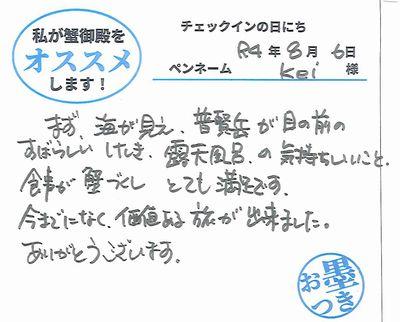 私が蟹御殿を
オススメ
します！
チェックインの日にち
R4年8月6日
ペンネーム Kei 様
まず、海が見え、普賢岳が目の前の
すばらしいけしき、露天風呂、の気持ちしいいこと、
食事が蟹づくし とても満足です、
今までになく、価値ある旅が出来ました。
ありがとうございます。
お墨つき